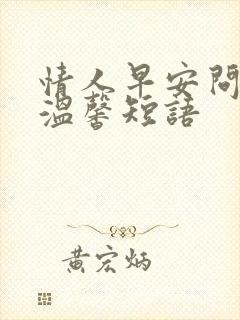 情人早安問
溫馨短語
黃宏炳